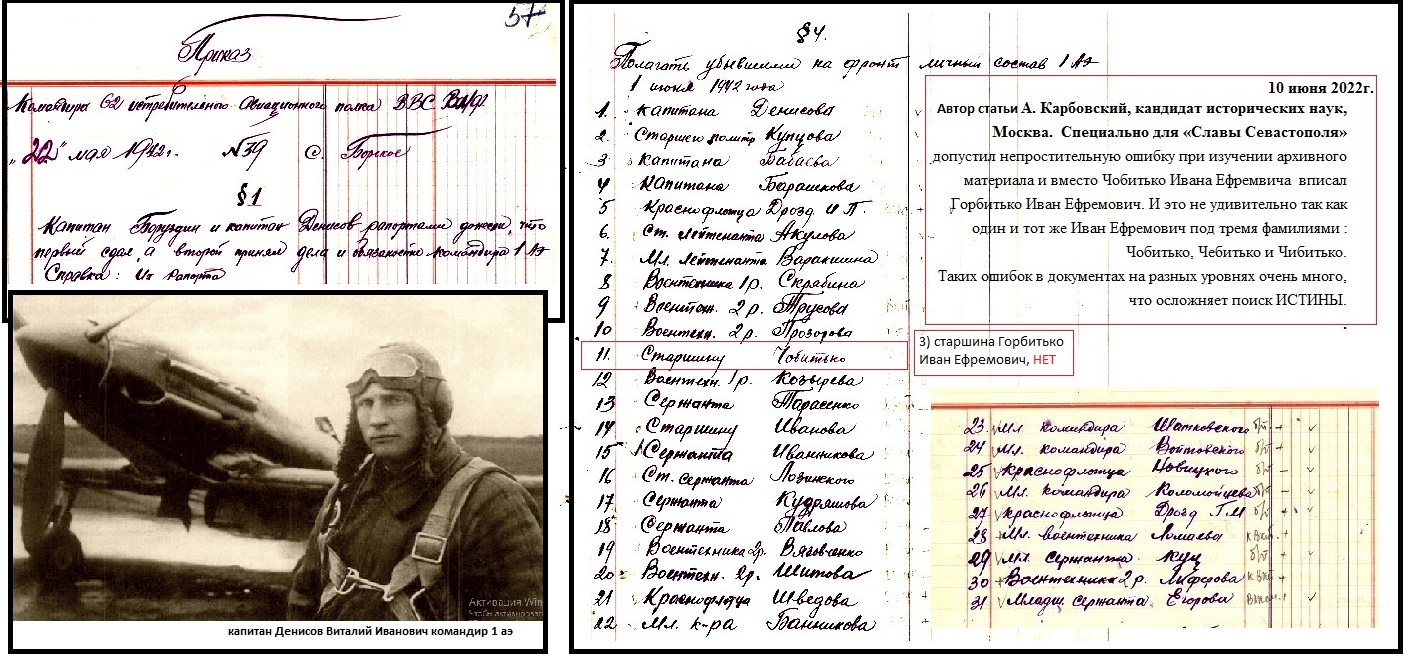 57
Приказ
Командира 62 истребительного Авиационного полка ВВС ВМФ
"22" мая 1942г. №39 с. Борское
§1
Капитан Бороздин и капитан Денисов рапортами донесли, что
первый сдал, а второй принял дела и обязаности командира 1 АЭ
Справка: Их рапорта
Активация Win
Чтобы активировать
капитан Денисов Виталий Иванович командир 1 аэ
§4.
Полагать убывшими на фронт личный состав 1 АЭ
1 июня 1942 года
1. Капитана Денисова
2. Старшего политр Купцова
3 Капитана Бабаева
4 Капитана Барашкова
5 Краснофлотца Дрозд И П.
6. Ст. лейтенанта Акулова
7. Мл. лейтенанта Варакшина
8 Воентехника 1р. Скрябина
9 Воентех. 2 р. Трусова
10 Воентехн. 2р. Прозорова
11. Старшину Чобитько
12 Воентехн. 1р. Козырева
13 Сержанта Тарасенко
14 Старшину Иванова
15 Сержанта Иванникова
16 Ст. сержанта Лозинского
17 Сержанта Кудряшова
18 Сержанта Павлова
19 Воентехника 2р. Вязовченко
20 Воентехн. 2р. Шитова
21 Краснофлотца Шведова
22 Мл. к-ра Банникова
10 июня 2022г.
Автор статьи А. Карбовский, кандидат исторических наук,
Москва. Специально для «Славы Севастополя»
допустил непростительную ошибку при изучении архивного
материала и вместо Чобитько Ивана Ефремвича вписал
Горбитько Иван Ефремович. И это не удивительно так как
один и тот же Иван Ефремович под тремя фамилиями :
Чобитько, Чебитько и Чибитько.
Таких ошибок в документах на разных уровнях очень много,
что осложняет поиск ИСТИНЫ.
3) старшина Горбитько
Иван Ефремович, НЕТ
23 Мл. командира Шатковского б/п
24 Мл. командира Войтовского б/п
25 Краснофлотца Новицкого б/п
26 Мл. командира Коломойцева б/п
27 Краснофлотца Дрозд Г.М б/п
28 Мл. воентехника Ломаева
29 Мл. сержанта Куц б/п
30 Воентехника 2р. Алферова
31 Младш. сержанта Егорова